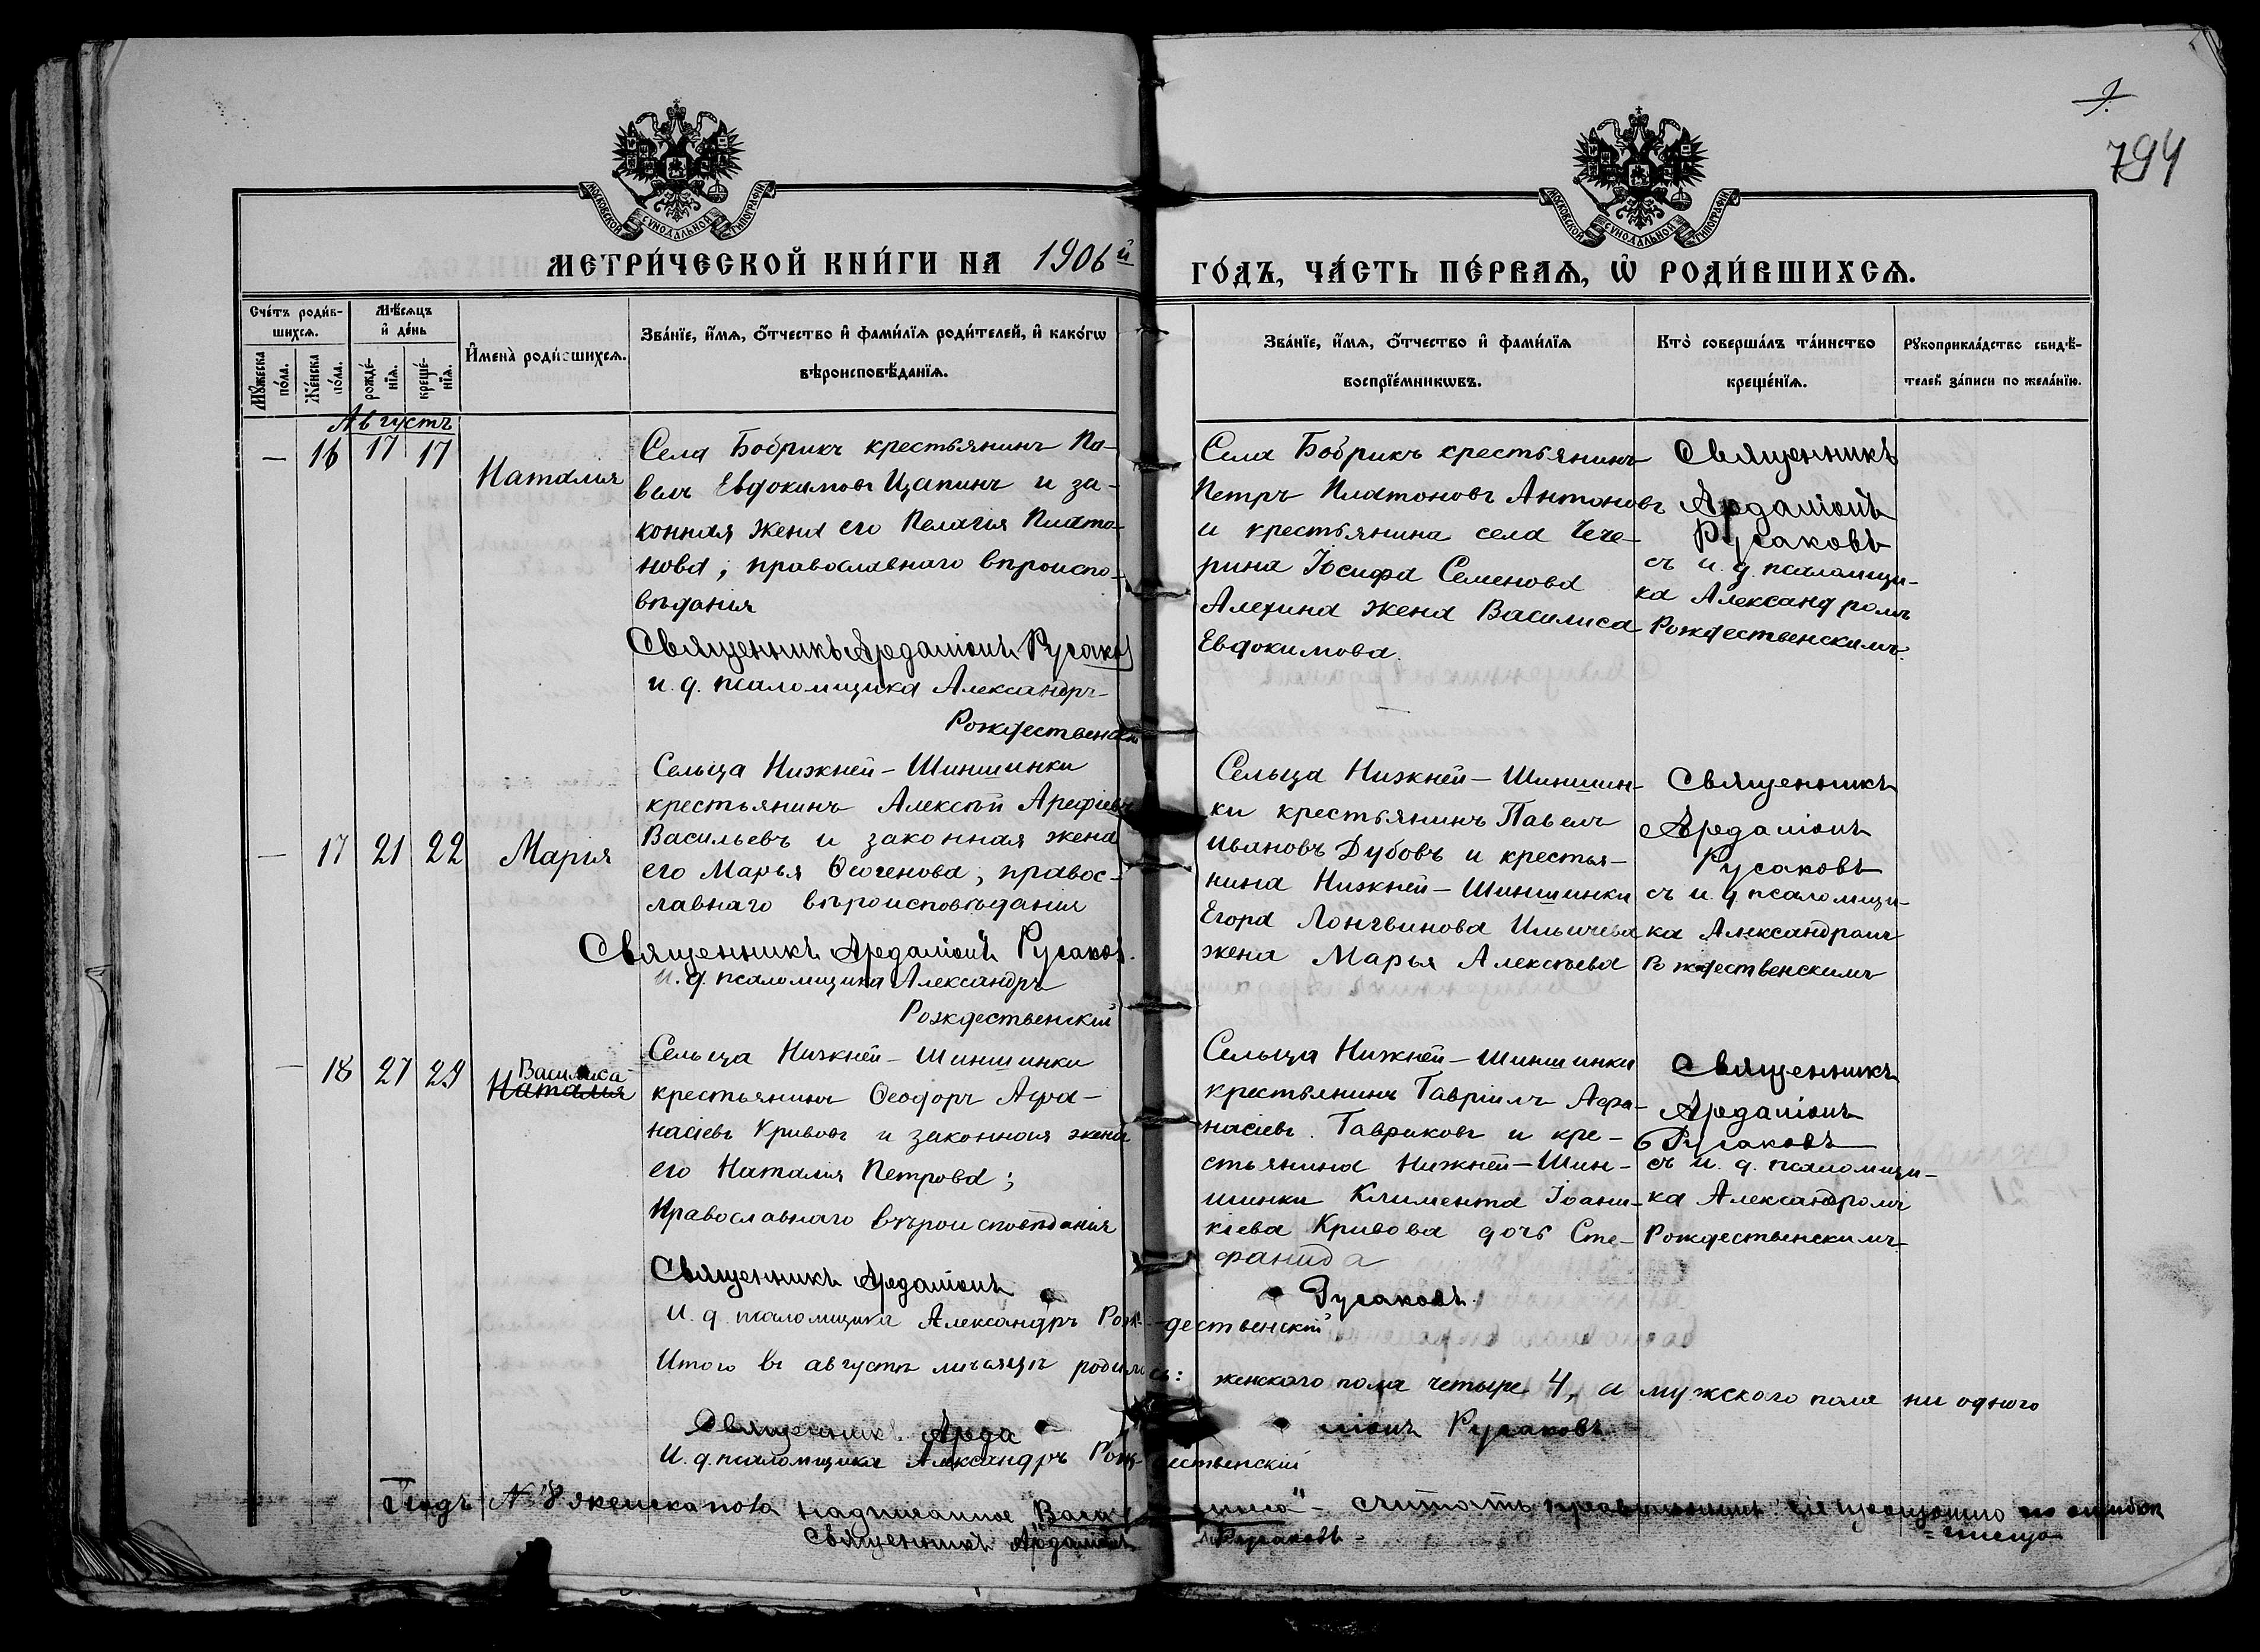 9.
794
МОСКОВСКОЙ СѴНОДАЛЬНОЙ ТИПОГРАФІИ
МОСКОВСКОЙ СѴНОДАЛЬНОЙ ТИПОГРАФІИ
МЕТРИ́ЧЕСКОЙ КНИ́ГИ НА 1906й
ГО́ДЪ, ЧА́СТЬ ПЕ́РВАѦ, Ѽ РОДИ́ВШИХСѦ.
Сче́тъ роди́в-
шихсѧ.
Мѣ́сѧцъ
и҆ де́нь
Мꙋ́жеска
по́ла.
Же́нска
по́ла.
рожде́-
нїѧ.
креще́-
нїѧ.
И҆мена̀ роди́вшихсѧ.
Зва́нїе, и҆́мѧ, ѻ҆́тчество и҆ фами́лїѧ роди́телей, и҆ како́гѡ
вѣроисповѣ́данїѧ.
Зва́нїе, и҆́мѧ, ѻ҆́тчество и҆ фами́лїѧ
воспрїе́мникѡвъ.
Кто̀ соверша́лъ та́инство
креще́нїѧ.
Рꙋкоприкла́дство свидѣ́-
телей за́писи по жела́нїю.
Августъ
— 16 17 17
Наталия
Села Бобрикъ крестьянинъ Па-
велъ Евдокимовъ Цапинъ и за-
конная жена его Пелагія Плато-
нова; православнаго вѣроиспо-
вѣданія
Священникъ Ардаліонъ Русаковъ
и. д. псаломщика Александръ
Рождественскій
Села Бобрикъ крестьянинъ
Петръ Платоновъ Антоновъ
и крестьянина села Чече-
рина Іосифа Семенова
Алехина жена Василиса
Евдокимова.
Священникъ
Ардаліонъ
Русаковъ
съ и. д. псаломщи-
ка Александромъ
Рождественскимъ.
— 17 21 22 Марія
Сельца Нижней-Шиншинки
крестьянинъ Алексѣй Арефіевъ
Васильевъ и законная жена
его Марья Ѳеогенова; правос-
лавнаго вѣроисповѣданія
Священникъ Ардаліонъ Русаковъ.
и. д. псаломщика Александръ
Рождественскій
Сельца Нижней-Шиншин-
ки крестьянинъ Павелъ
Ивановъ Дубовъ и крестья-
нина Нижней-Шиншинки
Егора Лонгвинова Ильичева
жена Марья Алексѣева
Священникъ
Ардаліонъ
Русаковъ
съ и. д. псаломщи-
ка Александромъ
Рождественскимъ
— 18 27 29 Василиса
Наталия
Сельца Нижней-Шиншинки
крестьянинъ Ѳеодоръ Афа-
насіевъ Кривовъ и законная жена
его Наталия Петрова;
Православнаго вѣроисповѣданія
Священникъ Ардаліонъ Русаковъ.
И. д. псаломщика Александръ Рождественскій
Сельца Нижней-Шиншинки
крестьянинъ Гавріилъ Афа-
насіевъ Гавриковъ и кре-
стьянина Нижней-Шин-
шинки Климента Іоани-
кіева Кривова дочь Сте-
фанида
Священникъ
Ардаліонъ
Русаковъ
съ и. д. псаломщи-
ка Александромъ
Рождественскимъ
Итого въ августѣ мѣсяцѣ родилось: женскаго пола четыре 4, а мужского пола ни одного
Священникъ Ардаліонъ Русаковъ
И. д. псаломщика Александръ Рождественскій
Подъ № 18 женска пола надписанное Василиса" - считать правильнымъ по ошибкѣ
Священникъ Ардаліонъ Русаковъ